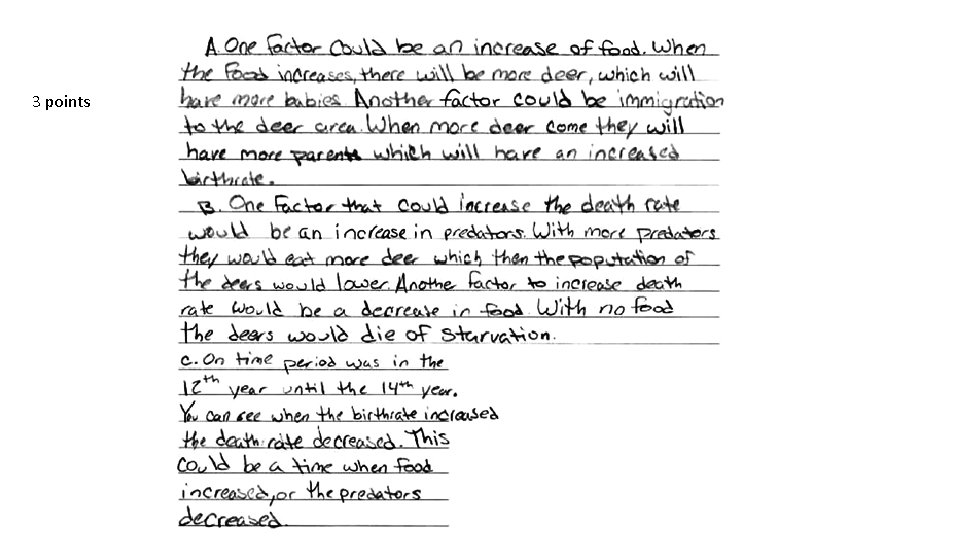 A. One factor could be an increase of food. When
the food increases, there will be more deer, which will
3 points
have more babies. Another factor could be immigration
to the deer area. When more deer come they will
have more parents which will have an increased
birthrate.
B. One factor that could increase the death rate
would be an increase in predators. With more predators
they would eat more deer which then the population of
the deers would lower. Another factor to increase death
rate would be a decrease in food. With no food
the deers would die of starvation.
C. On time period was in the
12th year until the 14th year.
You can see when the birthrate increased
the death rate decreased. This
could be a time when food
increased, or the predators
decreased.